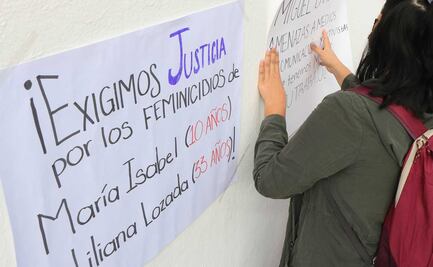 ¡EXIGIMOS JUSTICIA
por los FEMINICIDIOS de
MARÍA ISABEL (10 AÑOS)
LILIANA LOZADA (33 AÑOS)!
MIGUEL
AMENAZAS A MEDIOS